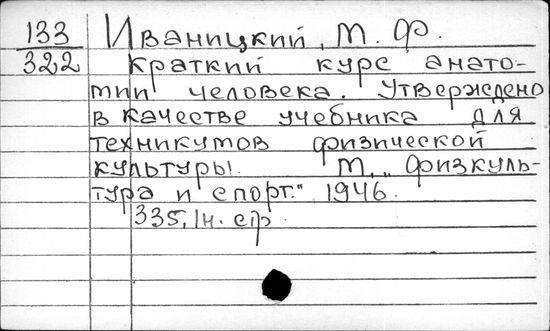 133 Иваницкий, М. Ф.
322 Краткий курс анато-
мии человека. Утверждено
в качестве учебника для
техникумов физической
культуры. М., „Физкуль-
тура и спорт." 1946.
335, 1н. стр.